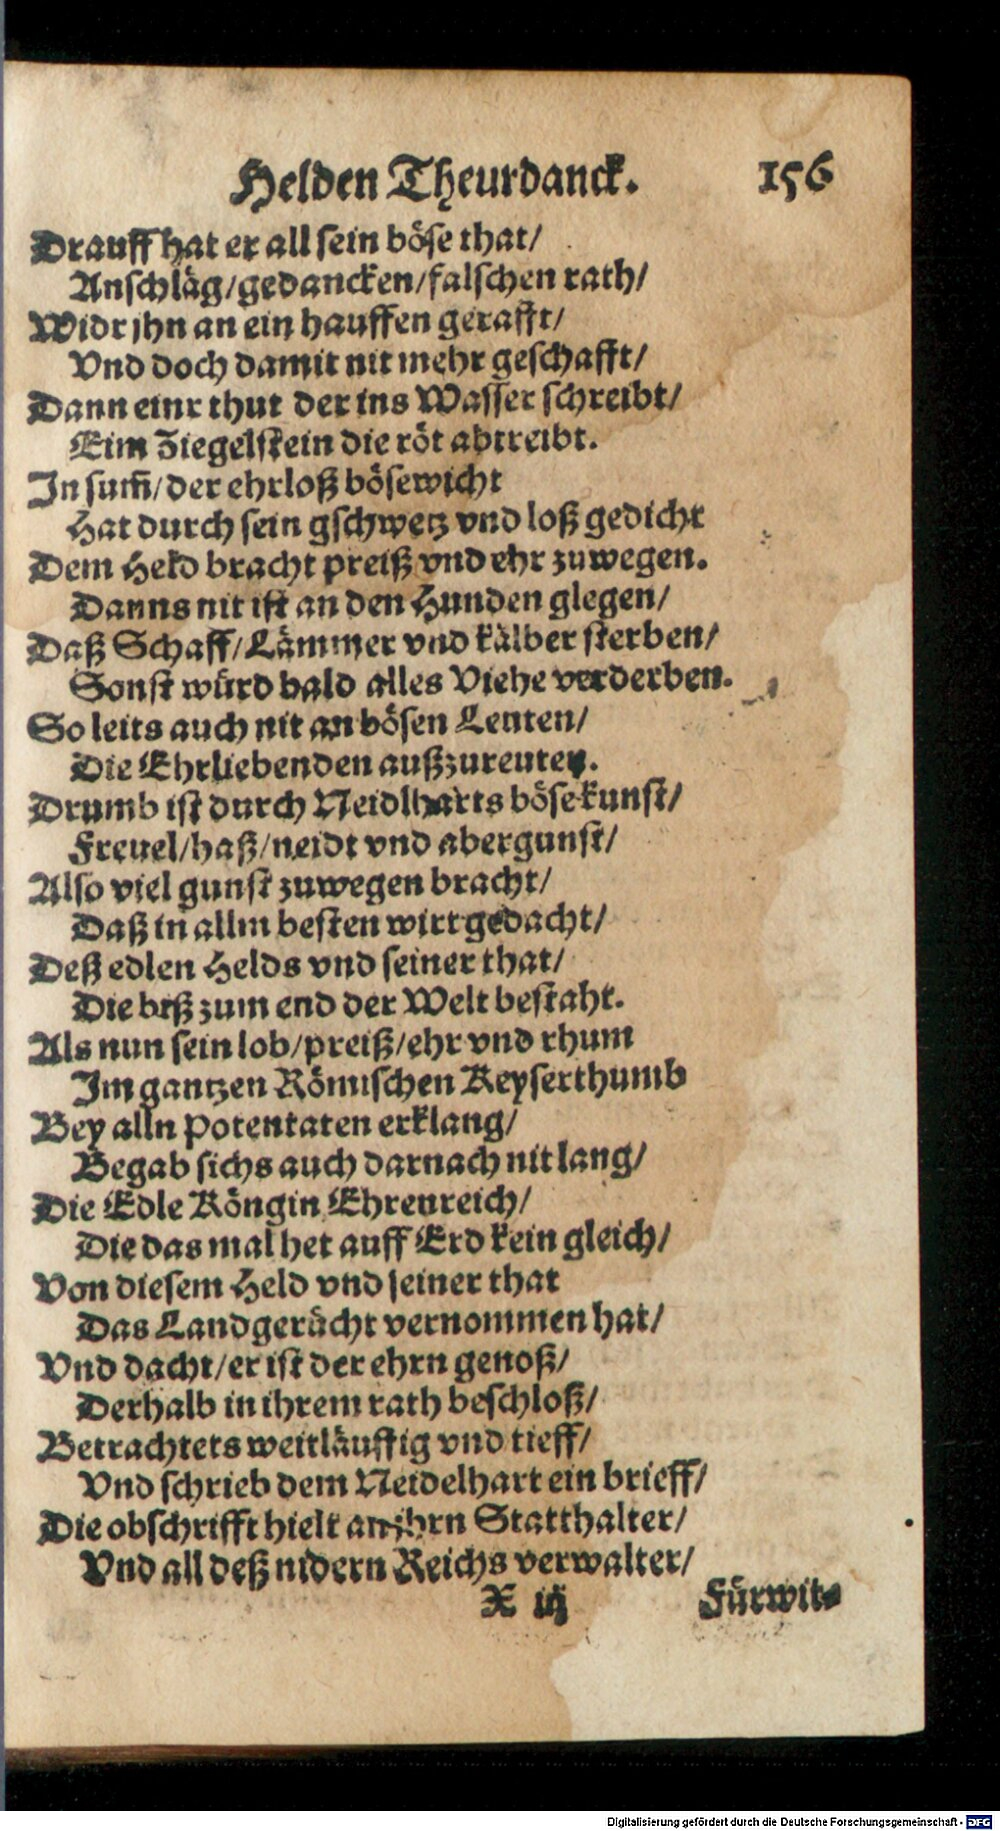 Helden Theurdanck. 156
Drauff hat er all sein böse that/
Anschläg/gedancken/falschen rath/
Widr jhn an ein hauffen gerafft/
Vnd doch damit nit mehr geschafft/
Dann einr thut der ins Wasser schreibt/
Eim Ziegelstein die röt abtreibt.
In sum̃/der ehrloß bösewicht
Hat durch sein gschwetz vnd loß gedicht
Dem Held bracht preiß vnd ehr zuwegen.
Danns nit ist an den Hunden glegen/
Daß Schaff/Lämmer vnd kälber sterben/
Sonst würd bald alles Viehe verderben.
So leits auch nit an bösen Leuten/
Die Ehrliebenden außzureuten.
Drumb ist durch Neidlharts böse kunst/
Freuel/haß/neidt vnd abergunst/
Also viel gunst zuwegen bracht/
Daß in allm besten wirt gedacht/
Deß edlen Helds vnd seiner that/
Die biß zum end der Welt bestaht.
Als nun sein lob/preiß/ehr vnd rhum
Im gantzen Römischen Keyserthumb
Bey alln Potentaten erklang/
Begab sichs auch darnach nit lang/
Die Edle Köngin Ehrenreich/
Die das mal het auff Erd kein gleich/
Von diesem Held vnd seiner that
Das Landgerücht vernommen hat/
Vnd dacht/er ist der ehrn genoß/
Derhalb in ihrem rath beschloß/
Betrachtets weitläufftig vnd tieff/
Vnd schrieb dem Neidelhart ein brieff/
Die obschrifft hielt an jhrn Statthalter/
Vnd all deß nidern Reichs verwalter/
X iij Fürwitz
Digitalisierung gefördert durch die Deutsche Forschungsgemeinschaft - DFG